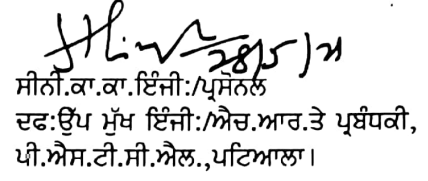 28/5/21
ਸੀਨੀ.ਕਾ.ਕਾ.ਇੰਜੀ:/ਪ੍ਰਸੋਨਲ
ਦਫ:ਉੱਪ ਮੁੱਖ ਇੰਜੀ:/ਐਚ.ਆਰ.ਤੇ ਪ੍ਰਬੰਧਕੀ,
ਪੀ.ਐਸ.ਟੀ.ਸੀ.ਐਲ.,ਪਟਿਆਲਾ।